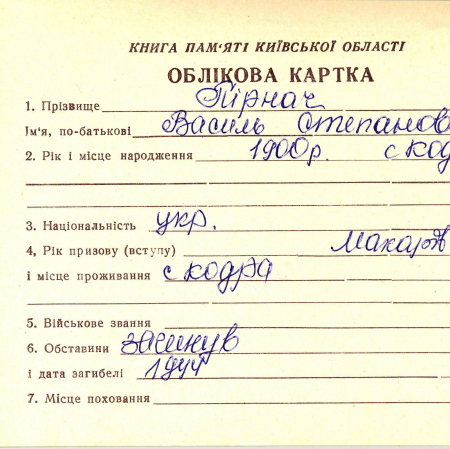 КНИГА ПАМ'ЯТІ КИЇВСЬКОЇ ОБЛАСТІ
ОБЛІКОВА КАРТКА
1. Прізвище Пірнач
Ім'я, по-батькові Василь Степанов
2. Рік і місце народження 1900р. с код
3. Національність укр.
4, Рік призову (вступу) Макарів
і місце проживання с кодра
5. Військове звання
6. Обставини загинув
і дата загибелі 1944
7. Місце поховання